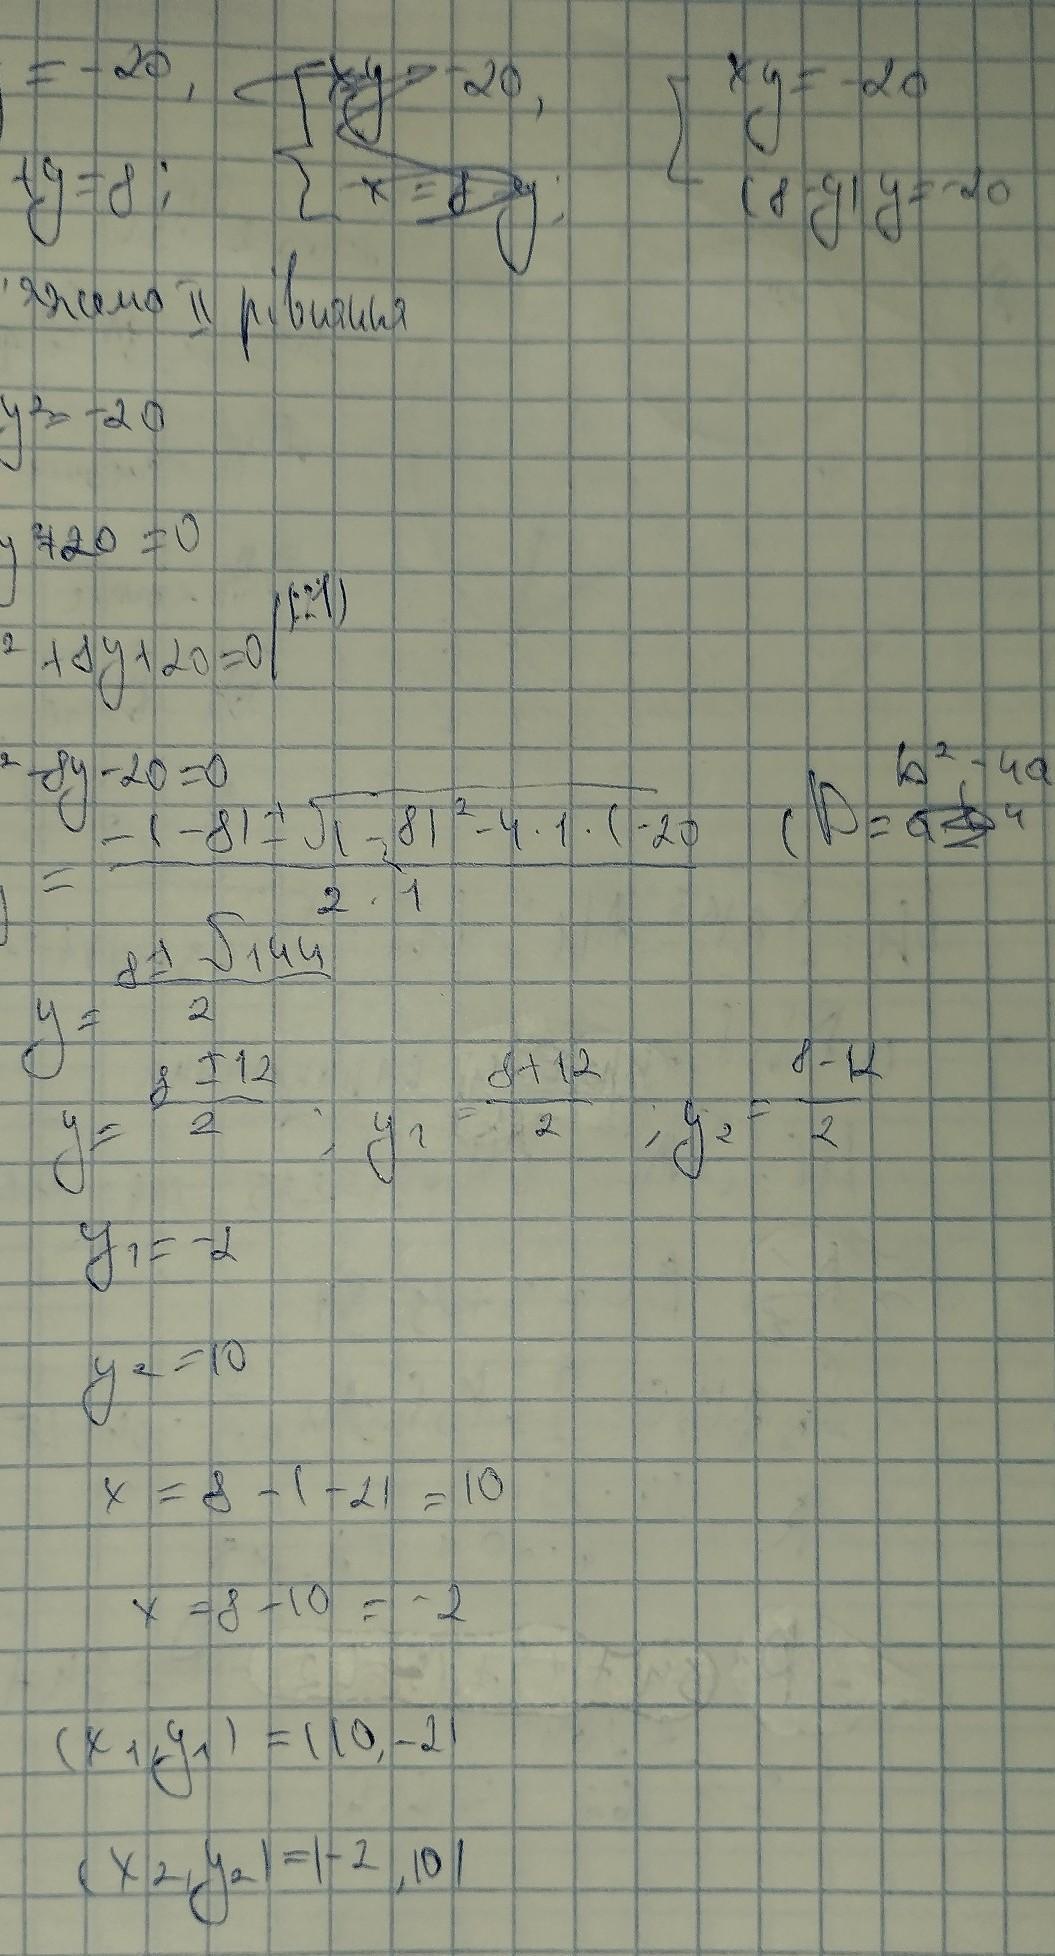 = -20, { xy = -20, { xy = -20
+y = 8; x = 8 - y; (8 - y) y = -20
II рівняння
y² = -20
y + 20 = 0
² + 8y + 20 = 0 | (:(-1))
² - 8y - 20 = 0
= (-(-8) ± √(-8)² - 4 · 1 · (-20) / 2 · 1 (D = b² - 4a
y = 8 ± √144 / 2
y = 8 ± 12 / 2 ; y₁ = 8 + 12 / 2 ; y₂ = 8 - 12 / 2
y₁ = -2
y₂ = 10
x = 8 - (-2) = 10
x = 8 - 10 = -2
(x₁, y₁) = (10, -2)
(x₂, y₂) = (-2, 10)